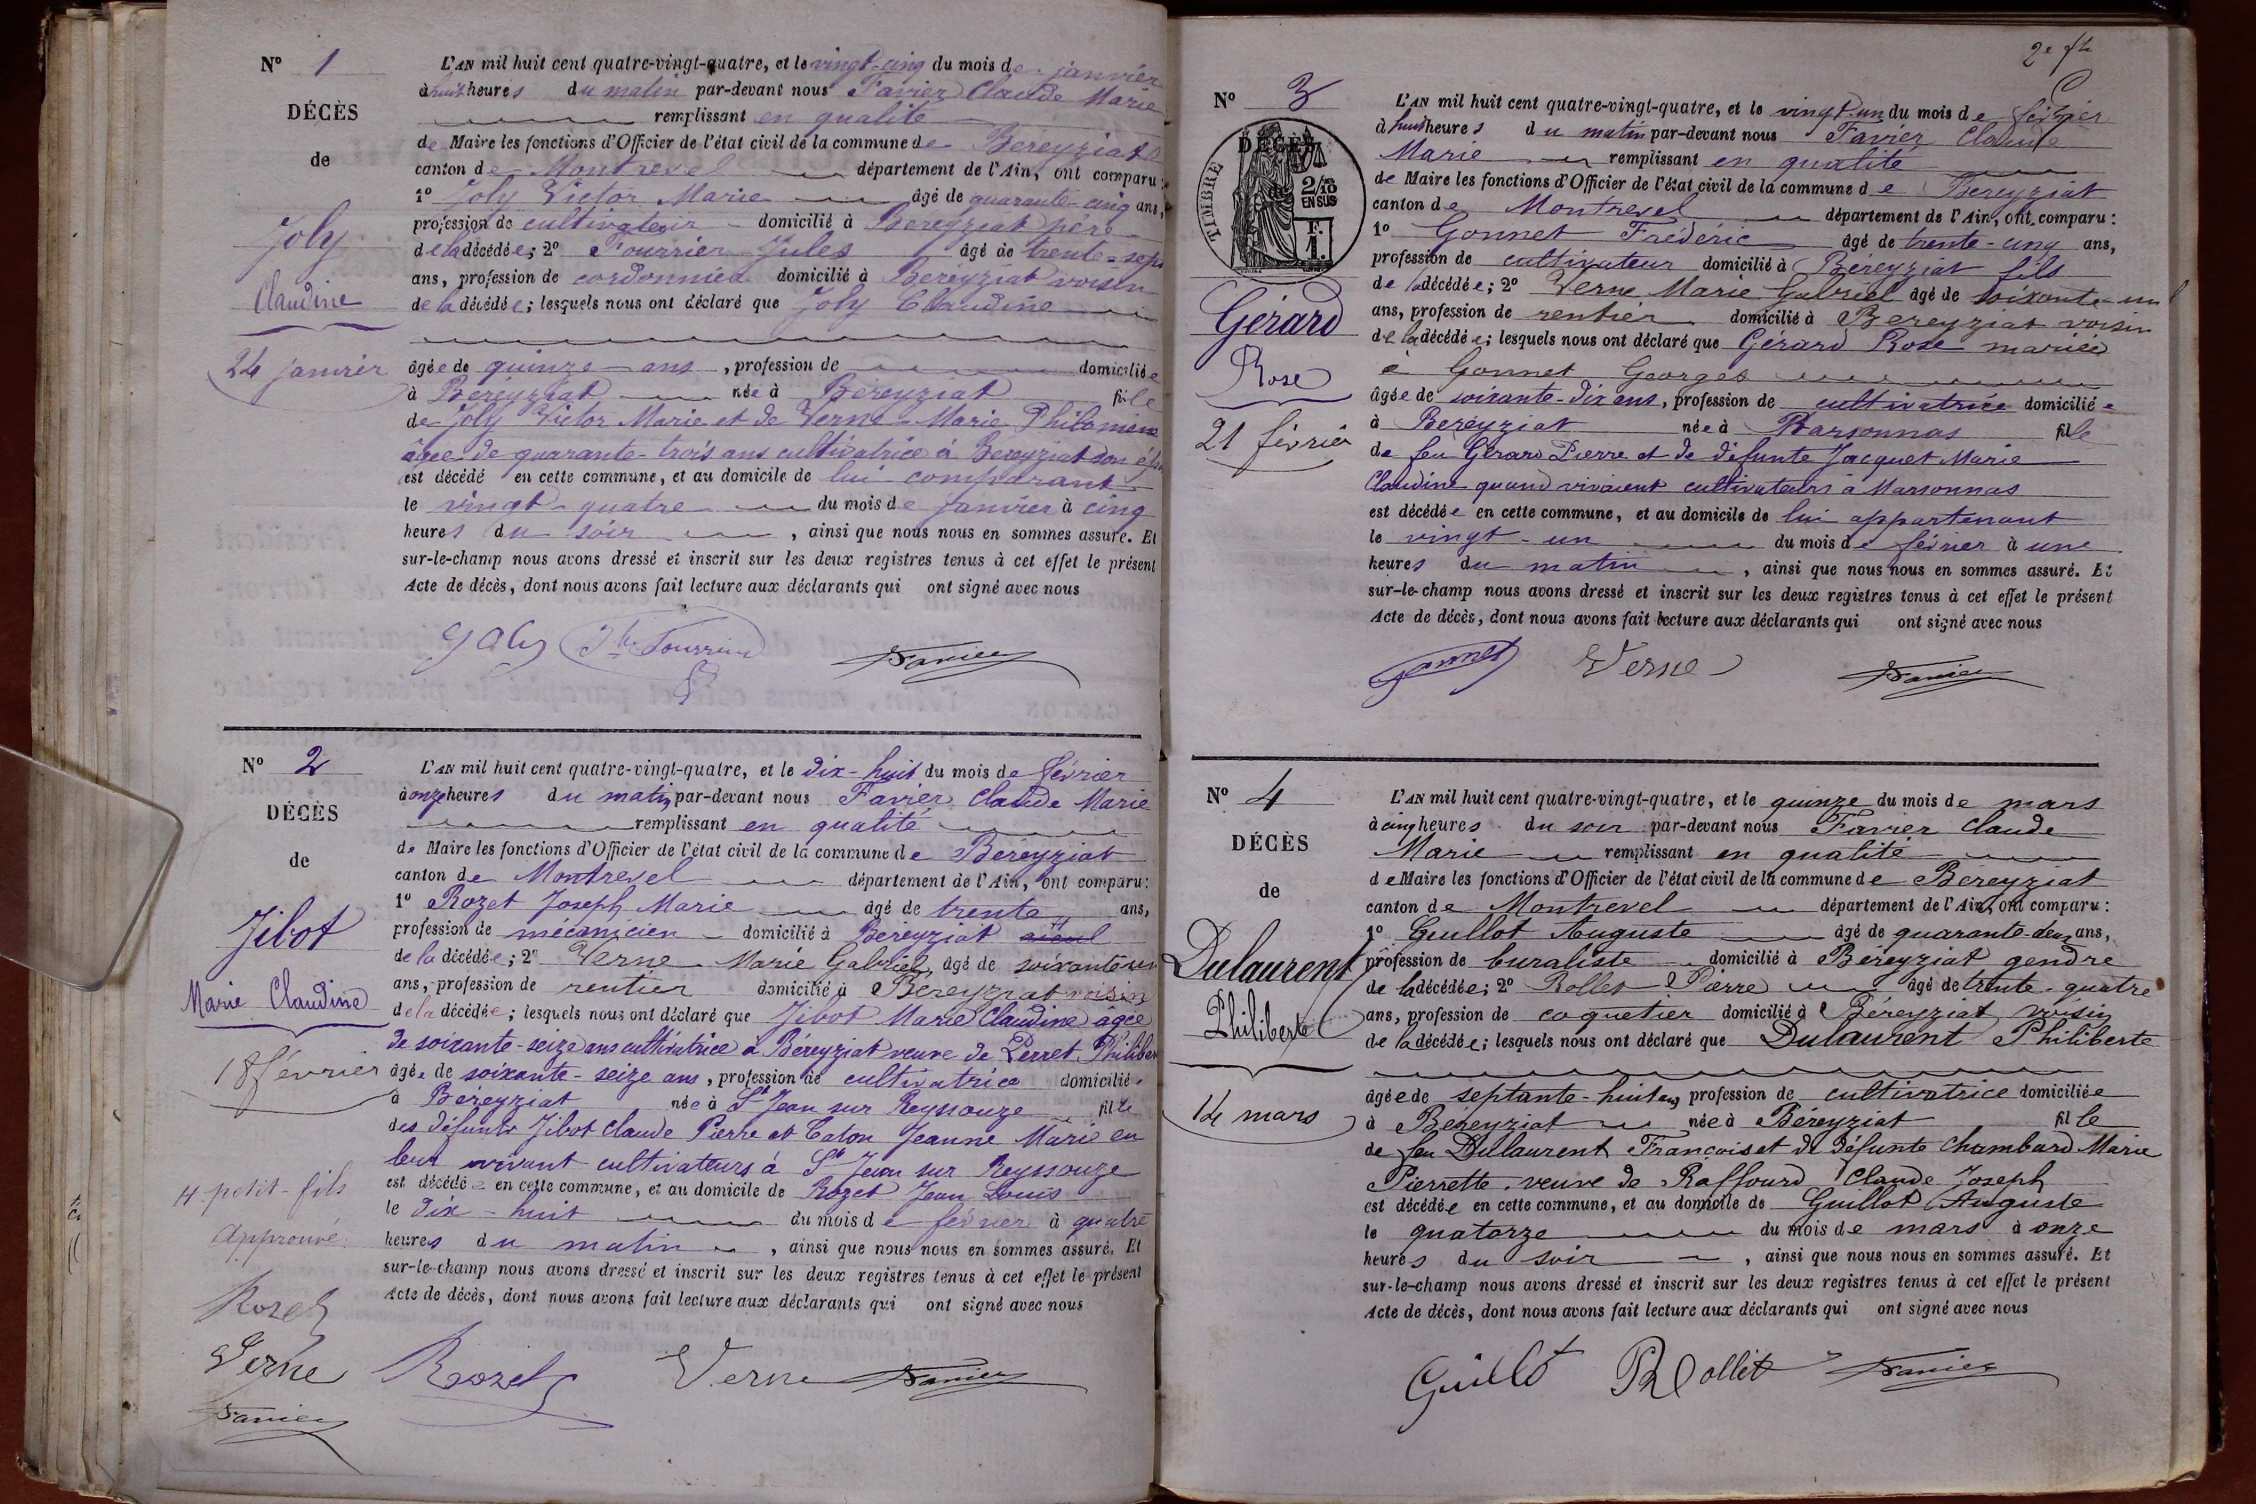 N° 1
DÉCÈS
de
Joly
Claudine
24 janvier
L'AN mil huit cent quatre-vingt-quatre, et le vingt-cinq du mois de janvier
à huit heures du matin par-devant nous Favier Claude Marie
remplissant en qualité
de Maire les fonctions d'Officier de l'état civil de la commune de Béreyziat
canton de Montrevel département de l'Ain, ont comparu :
1° Joly Victor Marie âgé de quarante-cinq ans,
profession de cultivateur domicilié à Béreyziat père
de la décédée; 2° Fourrier Jules âgé de trente-sept
ans, profession de cordonnier domicilié à Béreyziat voisin
de la décédée; lesquels nous ont déclaré que Joly Claudine
âgée de quinze ans, profession de domiciliée
à Béreyziat née à Béreyziat fille
de Joly Victor Marie et de Verne Marie Philomène
âgée de quarante-trois ans cultivatrice à Béreyziat son
est décédé en cette commune, et au domicile de lui comparant
le vingt-quatre du mois de janvier à cinq
heures du soir, ainsi que nous nous en sommes assuré. Et
sur-le-champ nous avons dressé et inscrit sur les deux registres tenus à cet effet le présent
Acte de décès, dont nous avons fait lecture aux déclarants qui ont signé avec nous
Joly Fourrier Favier
N° 2
DÉCÈS
de
Jibot
Marie Claudine
18 février
H petit-fils
Approuvé
Rozet
Verne
Favier
L'AN mil huit cent quatre-vingt-quatre, et le dix-huit du mois de février
à onze heures du matin par-devant nous Favier Claude Marie
remplissant en qualité
de Maire les fonctions d'Officier de l'état civil de la commune de Béreyziat
canton de Montrevel département de l'Ain, ont comparu :
1° Rozet Joseph Marie âgé de trente ans,
profession de mécanicien domicilié à Béreyziat aieul H
de la décédée; 2° Verne Marie Gabriel âgé de soixante un
ans, profession de rentier domicilié à Béreyziat voisin
de la décédée; lesquels nous ont déclaré que Jibot Marie Claudine âgée
de soixante-seize ans cultivatrice à Béreyziat veuve de Perret Philiber
âgée de soixante-seize ans, profession de cultivatrice domiciliée
à Béreyziat née à St Jean sur Reyssouze fille
des défunts Jibot Claude Pierre et Caton Jeanne Marie en
leur vivant cultivateurs à St Jean sur Reyssouze
est décédée en cette commune, et au domicile de Rozet Jean Louis
le dix-huit du mois de février à quatre
heures du matin, ainsi que nous nous en sommes assuré. Et
sur-le-champ nous avons dressé et inscrit sur les deux registres tenus à cet effet le présent
Acte de décès, dont nous avons fait lecture aux déclarants qui ont signé avec nous
Rozet Verne Favier
2e
N° 3
DÉCÈS
de
TIMBRE
2/10
EN SUS
F.
1.
Gérard
Rose
21 février
L'AN mil huit cent quatre-vingt-quatre, et le vingt-un du mois de février
à huit heures du matin par-devant nous Favier Claude
Marie remplissant en qualité
de Maire les fonctions d'Officier de l'état civil de la commune de Béreyziat
canton de Montrevel département de l'Ain, ont comparu :
1° Gonnet Frédéric âgé de trente-cinq ans,
profession de cultivateur domicilié à Béreyziat fils
de la décédée; 2° Verne Marie Gabriel âgé de soixante-un
ans, profession de rentier domicilié à Béreyziat voisin
de la décédée; lesquels nous ont déclaré que Gérard Rose mariée
à Gonnet Georges
âgée de soixante-dix ans, profession de cultivatrice domiciliée
à Béreyziat née à Marsonnas fille
de feu Gérard Pierre et de défunte Jacquet Marie
Claudine quand vivaient cultivateurs à Marsonnas
est décédée en cette commune, et au domicile de lui appartenant
le vingt-un du mois de février à une
heures du matin, ainsi que nous nous en sommes assuré. Et
sur-le-champ nous avons dressé et inscrit sur les deux registres tenus à cet effet le présent
Acte de décès, dont nous avons fait lecture aux déclarants qui ont signé avec nous
Gonnet Verne Favier
N° 4
DÉCÈS
de
Dulaurent
Philiberte
14 mars
L'AN mil huit cent quatre-vingt-quatre, et le quinze du mois de mars
à cinq heures du soir par-devant nous Favier Claude
Marie remplissant en qualité
de Maire les fonctions d'Officier de l'état civil de la commune de Béreyziat
canton de Montrevel département de l'Ain, ont comparu :
1° Guillot Auguste âgé de quarante-deux ans,
profession de buraliste domicilié à Béreyziat gendre
de la décédée; 2° Rollet Pierre âgé de trente-quatre
ans, profession de coquetier domicilié à Béreyziat voisin
de la décédée; lesquels nous ont déclaré que Dulaurent Philiberte
âgée de septante-huit ans, profession de cultivatrice domiciliée
à Béreyziat née à Béreyziat fille
de feu Dulaurent François et de défunte Chambard Marie
Pierrette veuve de Raffourd Claude Joseph
est décédée en cette commune, et au domicile de Guillot Auguste
le quatorze du mois de mars à onze
heures du soir, ainsi que nous nous en sommes assuré. Et
sur-le-champ nous avons dressé et inscrit sur les deux registres tenus à cet effet le présent
Acte de décès, dont nous avons fait lecture aux déclarants qui ont signé avec nous
Guillot Rollet Favier